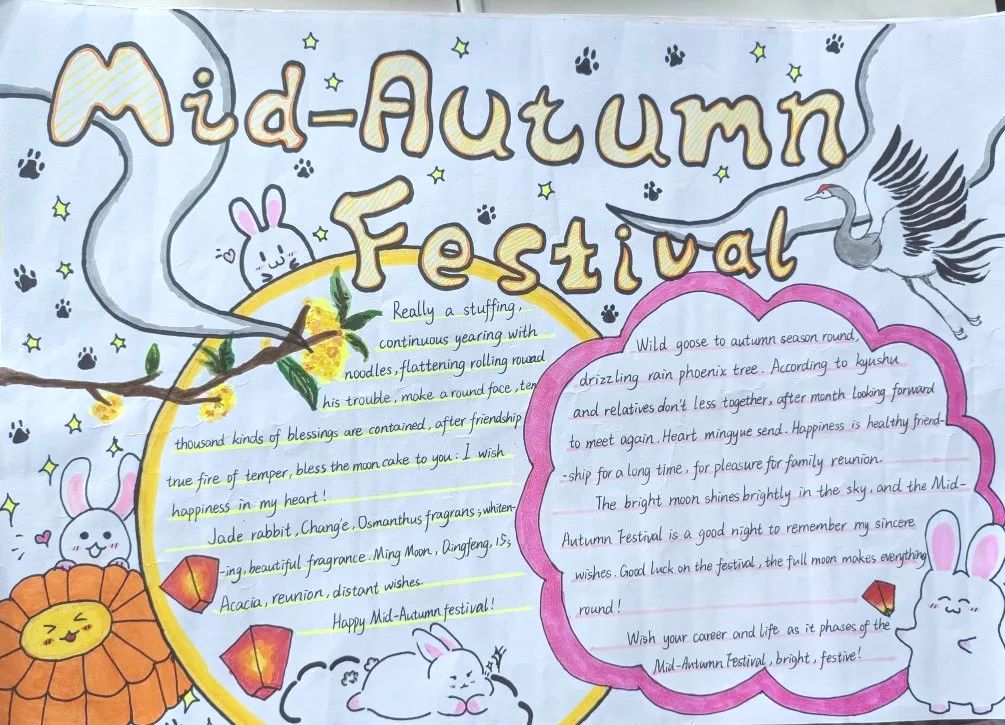 Mid-Autumn
Festival
Really a stuffing,
continuous yearing with
noodles, flattening rolling round
his trouble, make a round face, ten
thousand kinds of blessings are contained, after friendship
true fire of temper, bless the moon cake to you: I wish
happiness in my heart!
Jade rabbit, Chang'e, Osmanthus fragrans, whiten-
-ing, beautiful fragrance. Ming Moon, Qingfeng, is,
Acacia, reunion, distant wishes.
Happy Mid-Autumn festival!
Wild goose to autumn season round,
drizzling rain phoenix tree. According to kyushu
and relatives don't less together, after month looking forward
to meet again. Heart mingyue send. Happiness is healthy friend-
-ship for a long time, for pleasure for family reunion.
The bright moon shines brightly in the sky, and the Mid-
Autumn Festival is a good night to remember my sincere
wishes. Good luck on the festival, the full moon makes everything
round!
Wish your career and life as it phases of the
Mid-Autumn Festival, bright, festive!